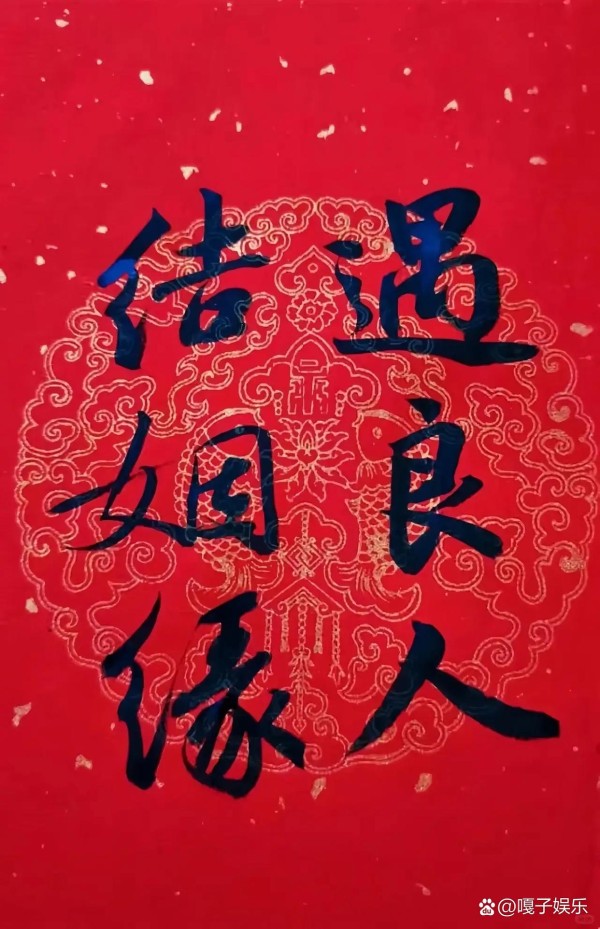 遇良人
结姻缘
@嘎子娱乐